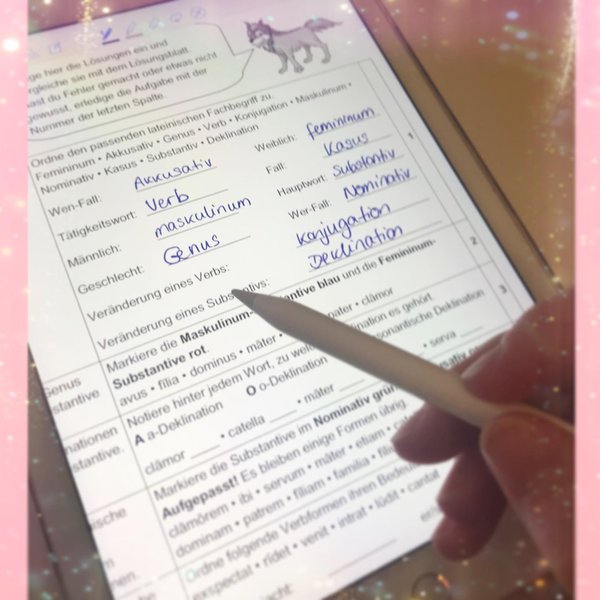 ge hier die Lösungen ein und
rgleiche sie mit dem Lösungsblatt
ast du Fehler gemacht oder etwas nicht
gewusst, erledige die Aufgabe mit der
Nummer der letzten Spalte.
Ordne den passenden lateinischen Fachbegriff zu.
Femininum • Akkusativ • Genus • Verb • Konjugation • Maskulinum •
Nominativ • Kasus • Substantiv • Deklination
1
Wen-Fall: Akkusativ Weiblich: femininum
Tätigkeitswort: Verb Fall: Kasus
Männlich: maskulinum Hauptwort: Substantiv
Geschlecht: Genus Wer-Fall: Nominativ
Veränderung eines Verbs: Konjugation
Veränderung eines Substantivs: Deklination
Markiere die Maskulinum- antive blau und die Femininum- 2
Substantive rot.
avus • filia • dominus • māter • pater • clāmor
Genus
stantive
Notiere hinter jedem Wort, zu wel lination es gehört. 3
A a-Deklination O o-Deklination sonantische Deklination
clāmor • catella • māter • serva
nationen
stantive.
Markiere die Substantive im Nominativ grün
Aufgepasst! Es bleiben einige Formen übrig.
clāmōrem • ibi • servum • māter • etiam
dominam • patrem • filiam • familia
Ordne folgende Verbformen ihren Bedeu
exspectat • rīdet • venit • intrat • lūdit • cantat